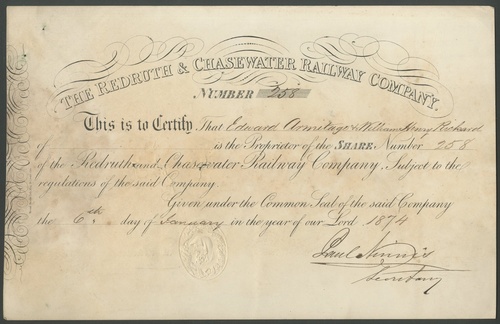 THE REDRUTH & CHASEWATER RAILWAY COMPANY.
NUMBER 258
This is to Certify That Edward Armitage & William Henry Richard
of is the Proprietor of the SHARE Number 258
of the Redruth and Chasewater Railway Company, Subject to the
regulations of the said Company.
Given under the Common Seal of the said Company
the 6th day of January in the year of our Lord 1874
Paul Ninnis
Secretary